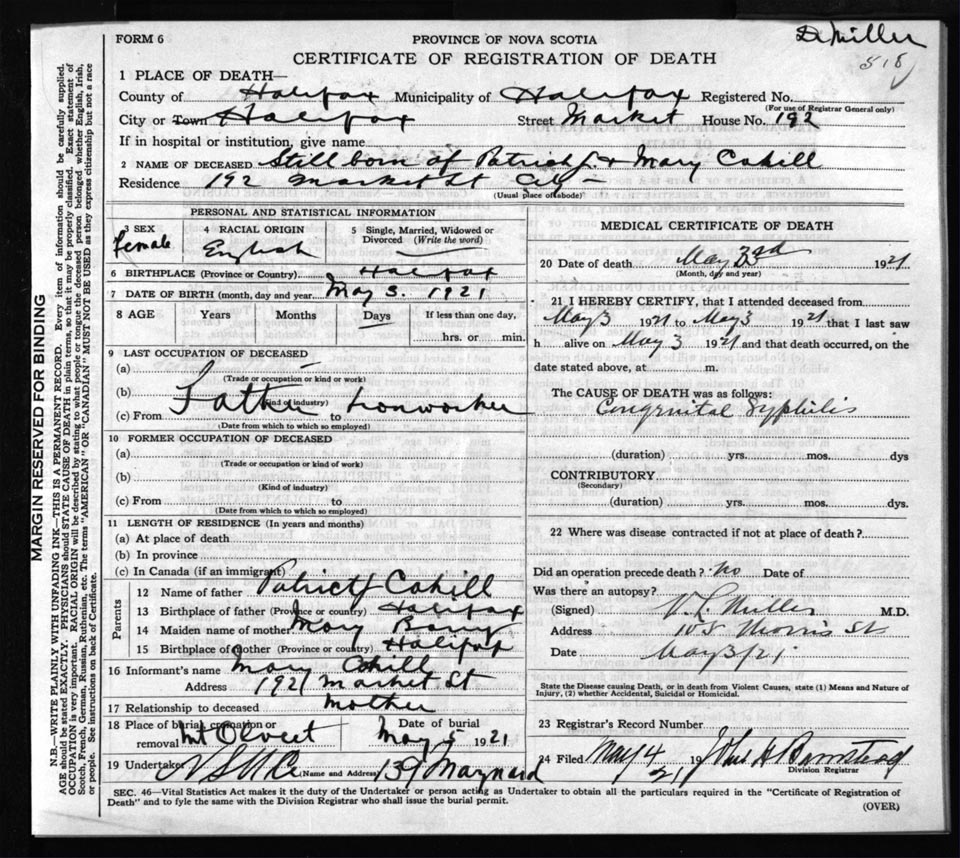 De Miller
518
FORM 6
PROVINCE OF NOVA SCOTIA
CERTIFICATE OF REGISTRATION OF DEATH
1 PLACE OF DEATH—
County of Halifax Municipality of Halifax Registered No.
(For use of Registrar General only)
City or Town Halifax Street Market House No. 192
If in hospital or institution, give name
2 NAME OF DECEASED Still born of Patrick J. & Mary Cahill
Residence 192 Market St City
(Usual place of abode)
PERSONAL AND STATISTICAL INFORMATION
3 SEX female
4 RACIAL ORIGIN English
5 Single, Married, Widowed or Divorced (Write the word)
6 BIRTHPLACE (Province or Country) Halifax
7 DATE OF BIRTH (month, day and year) May 3. 1921
8 AGE Years Months Days If less than one day, hrs. or min.
9 LAST OCCUPATION OF DECEASED
(a)
(Trade or occupation or kind or work)
(b)
(Kind of industry)
Father Ironworker
(c) From to
(Date from which to which so employed)
10 FORMER OCCUPATION OF DECEASED
(a)
(Trade or occupation or kind of work)
(b)
(Kind of industry)
(c) From to
(Date from which to which so employed)
11 LENGTH OF RESIDENCE (In years and months)
(a) At place of death
(b) In province
(c) In Canada (if an immigrant)
Parents
12 Name of father Patrick J Cahill
13 Birthplace of father (Province or country) Halifax
14 Maiden name of mother Mary Barry
15 Birthplace of mother (Province or country) Halifax
16 Informant's name Mary Cahill
Address 192 Market St
17 Relationship to deceased Mother
18 Place of burial cremation or removal Mt Olivet Date of burial May 5 1921
19 Undertaker NSUCo (Name and Address) 139 Maynard
MEDICAL CERTIFICATE OF DEATH
20 Date of death May 3rd 1921
(Month, day and year)
21 I HEREBY CERTIFY, that I attended deceased from
May 3 1921 to May 3 1921 that I last saw
h alive on May 3 1921 and that death occurred, on the
date stated above, at m.
The CAUSE OF DEATH was as follows:
Congenital Syphilis
(duration) yrs. mos. dys
CONTRIBUTORY
(Secondary)
(duration) yrs. mos. dys.
22 Where was disease contracted if not at place of death?
Did an operation precede death? No Date of
Was there an autopsy?
(Signed) V. L. Miller M.D.
Address Morris St
Date May 3/21
State the Disease causing Death, or in death from Violent Causes, state (1) Means and Nature of
Injury, (2) whether Accidental, Suicidal or Homicidal.
23 Registrar's Record Number
24 Filed May 4 1921 John H Barnstead
Division Registrar
SEC. 46—Vital Statistics Act makes it the duty of the Undertaker or person acting as Undertaker to obtain all the particulars required in the "Certificate of Registration of
Death" and to fyle the same with the Division Registrar who shall issue the burial permit.
(OVER)
MARGIN RESERVED FOR BINDING
N.B.—WRITE PLAINLY WITH UNFADING INK—THIS IS A PERMANENT RECORD. Every item of information should be carefully supplied.
AGE should be stated EXACTLY. PHYSICIANS should STATE CAUSE OF DEATH in plain terms, so that it may be properly classified. Exact statement of
OCCUPATION is very important. RACIAL ORIGIN will be described by stating to what people or tongue the deceased person belonged whether English, Irish,
Scotch, French, German, Russian, Ruthenian, etc. The terms "AMERICAN" OR "CANADIAN" MUST NOT BE USED as they express citizenship but not a race
or people. See instructions on back of Certificate.